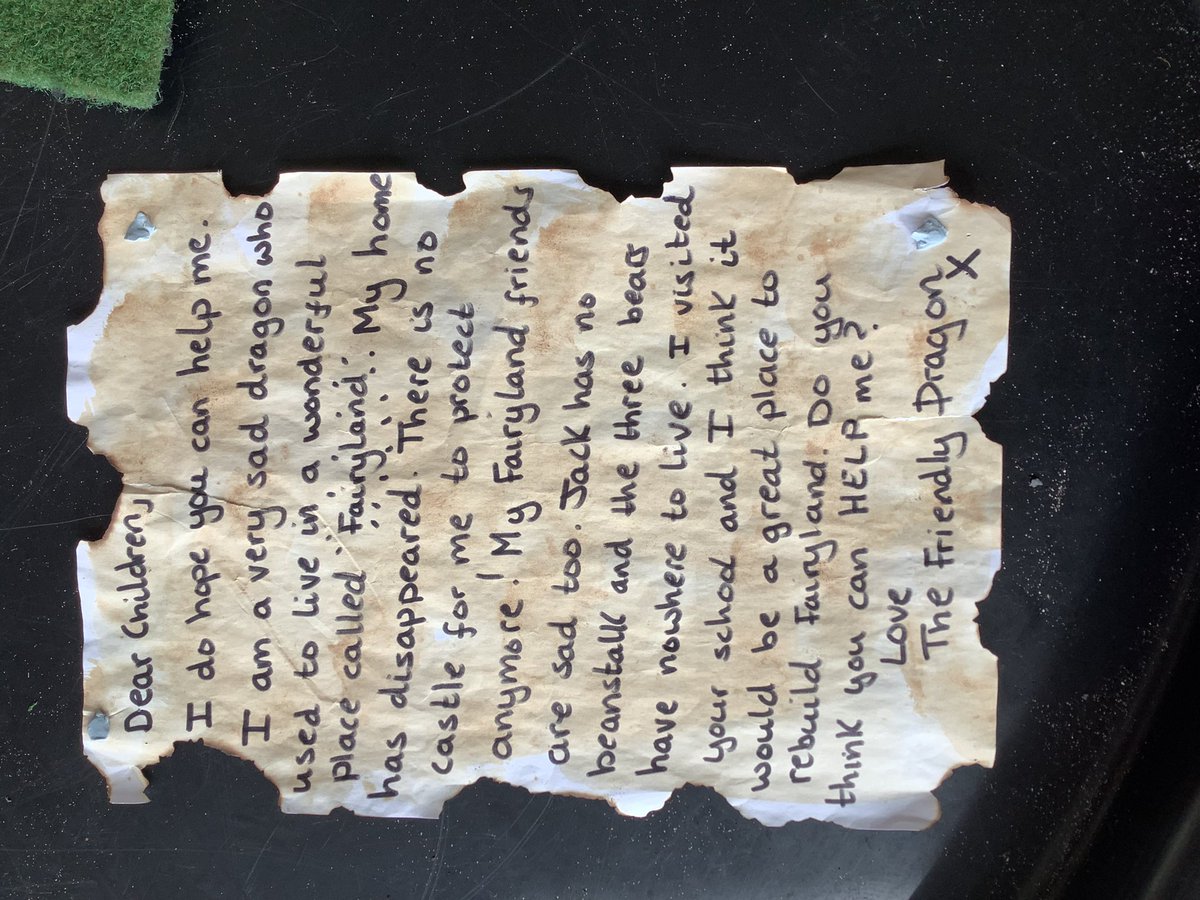 Dear Children,
I do hope you can help me.
I am a very sad dragon who
used to live in a wonderful
place called Fairyland. My home
has disappeared. There is no
castle for me to protect
anymore! My Fairyland friends
are sad too. Jack has no
beanstalk and the three bears
have nowhere to live. I visited
your school and I think it
would be a great place to
rebuild Fairyland. Do you
think you can HELP me?
Love
The Friendly Dragon
X